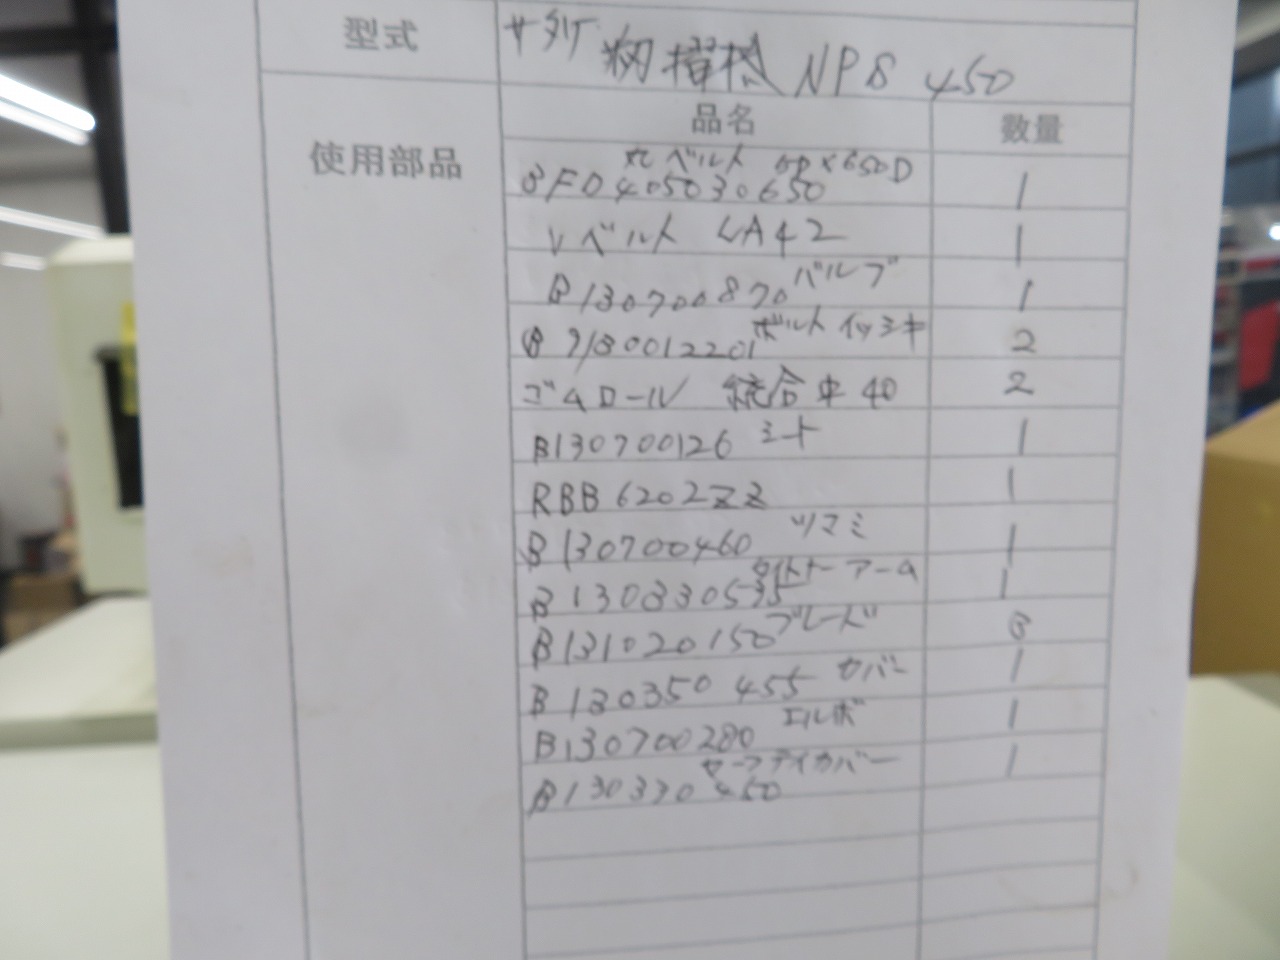 型式 サタケ 籾摺機 NPS 450
使用部品 品名 数量
丸ベルト 5φ×650D
BFD405030650 1
Vベルト LA42 1
B130700870 バルブ 1
B9180012201 ボルト イッシキ 2
ゴムロール 統合中40 2
B130700126 シート 1
RBB 6202ZZ 1
B130700460 ツマミ 1
アーム
B130330535 1
B131020150 ブレード 3
B130350455 カバー 1
B130700280 エルボ 1
セーフティカバー 1
B130330450